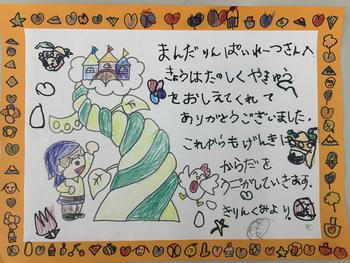 まんだりんぱいれーつさんへ
きょうはたのしくやきゅう
をおしえてくれて
ありがとうございました。
これからもげんきに
からだを
うごかしていきます。
きりんぐみより